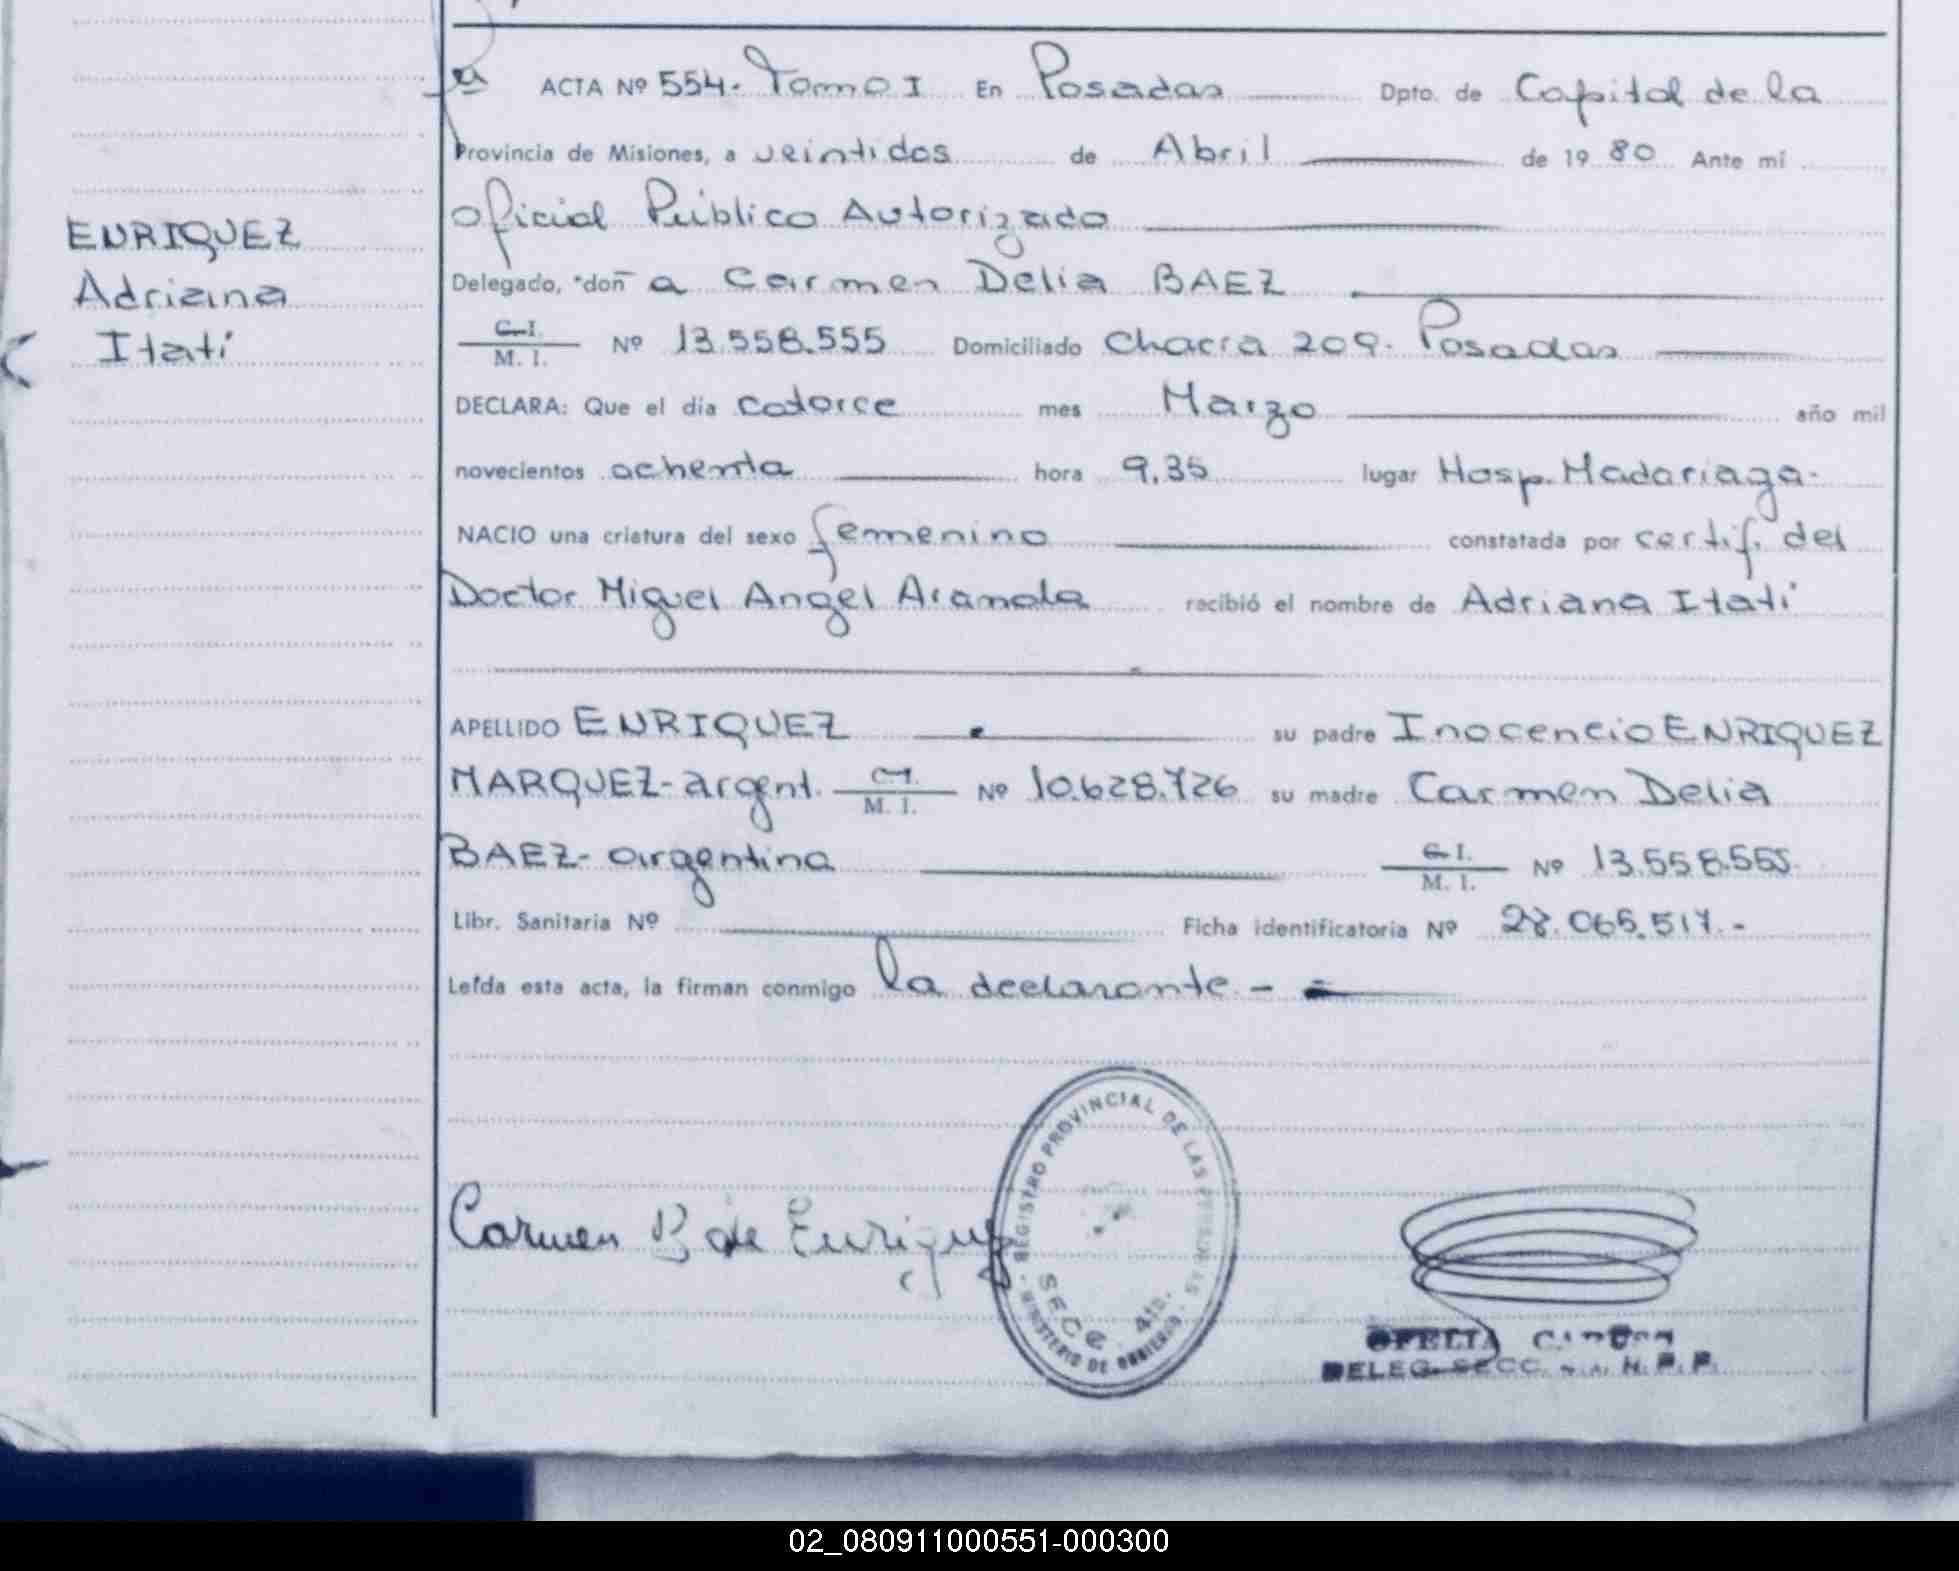 ACTA Nº 554. Tomo I En Posadas Dpto. de Capital de la
Provincia de Misiones, a veintidos de Abril de 19 80 Ante mí
Oficial Público Autorizado
ENRIQUEZ
Adriana
Itatí
Delegado, "doñ a Carmen Delia BAEZ
C.I.
M. I. Nº 13.558.555 Domiciliado Chacra 209. Posadas
DECLARA: Que el día catorce mes Marzo año mil
novecientos ochenta hora 9,35 lugar Hosp. Madariaga.
NACIO una criatura del sexo femenino constatada por certif. del
Doctor Miguel Angel recibió el nombre de Adriana Itatí
APELLIDO ENRIQUEZ su padre Inocencio ENRIQUEZ
MARQUEZ - argent. M. I. Nº 10.628.726 su madre Carmen Delia
BAEZ - argentina C.I.
M. I. Nº 13.558.555.
Libr. Sanitaria Nº Ficha identificatoria Nº 28.065.517.-
Leída esta acta, la firman conmigo la declarante.-
Carmen B de Enriquez
REGISTRO PROVINCIAL DE LAS PERSONAS
SECC. 4ta.
MINISTERIO DE GOBIERNO
OFELIA
DELEG. SECC. R. P. P.
02_080911000551-000300